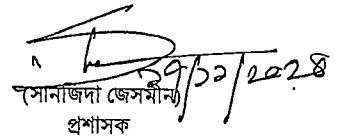 ২৭/১১/২০২৪
(সানজিদা জেসমীন)
প্রশাসক